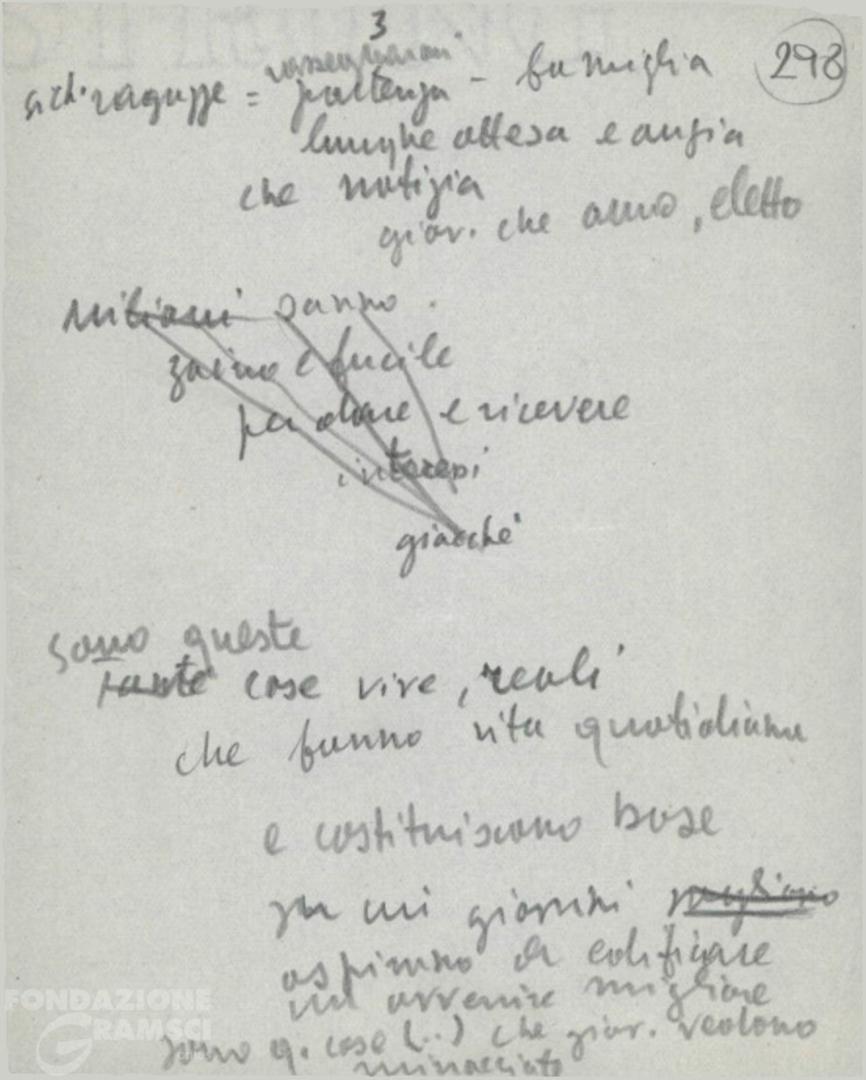 3
298
ragazze = partenza - famiglia
lunghe attesa e ansia
che notizia
giov. che amo, eletto
miliani sanno
zaino e fucile
per dare e ricevere
interessi
giacché
sono queste
tante cose vive, reali
che fanno vita quotidiana
e costituiscono base
per cui giovani vogliono
aspirano di edificare
un avvenire migliore
sono q. cose (...) che giov. vedono
minacciate
FONDAZIONE
GRAMSCI